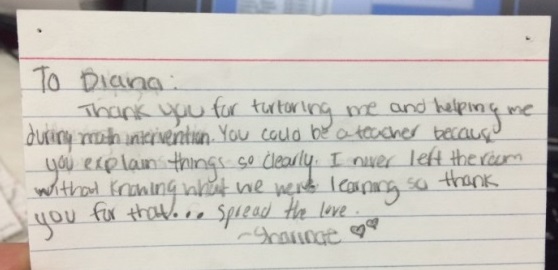 To Diana:
Thank you for turtoring me and helping me
during math intervention. You could be a teacher because
you explain things so clearly. I never left the room
without knowing what we were learning so thank
you for that... spread the love.
~Sharinae ♡♡